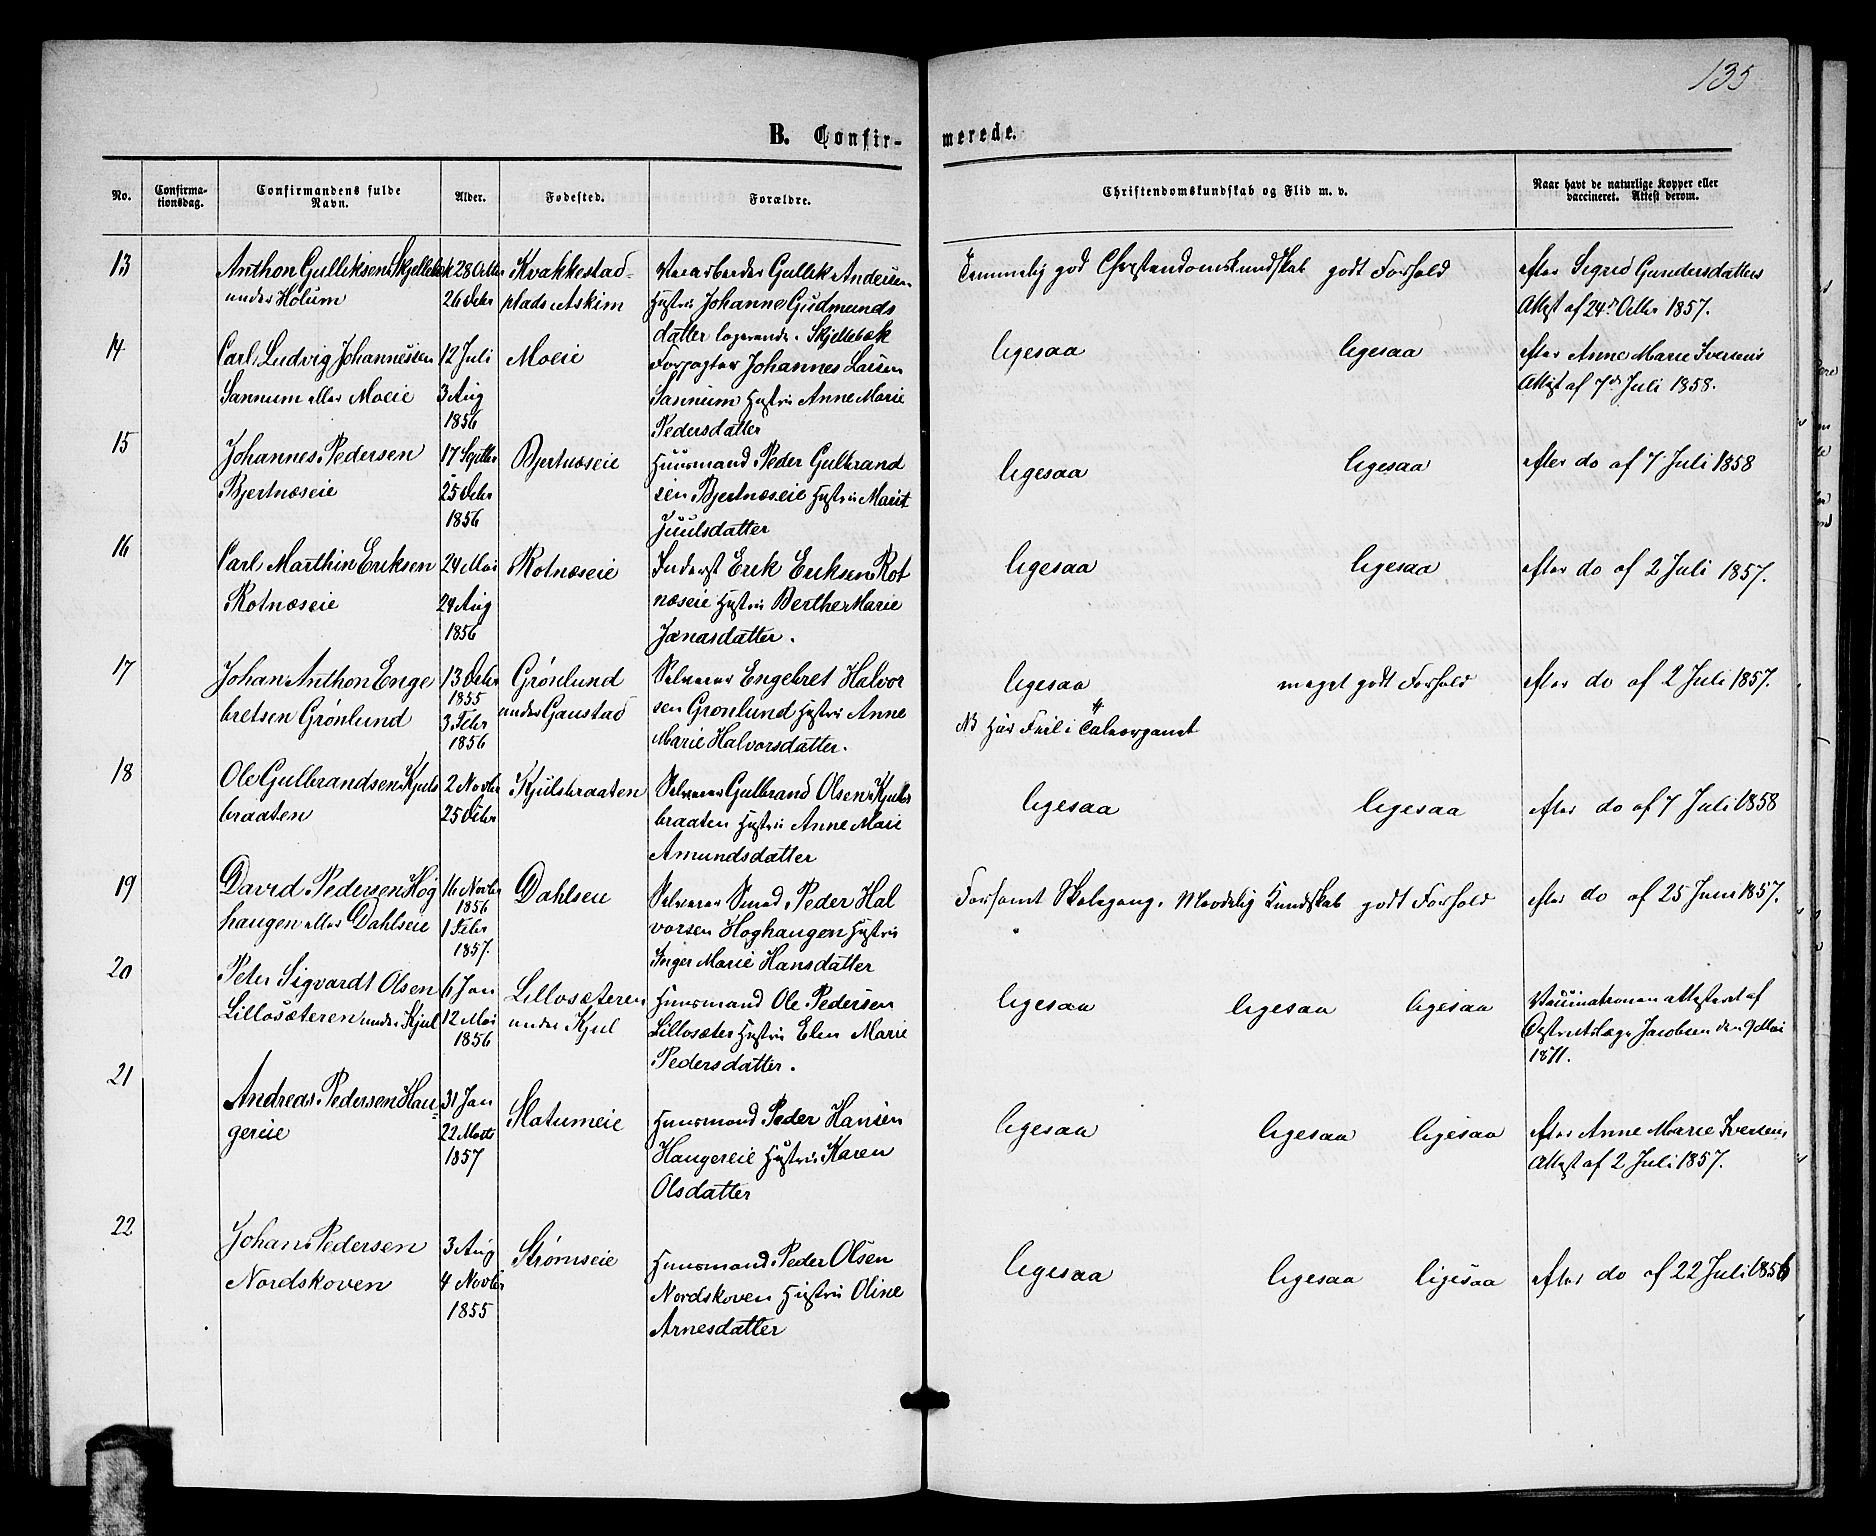 135
B. Confir- merede.
No. Confirma-tionsdag. Confirmandens fulde Navn. Alder. Fødested. Forældre. Christendomskundskab og Flid m. v. Naar havt de naturlige Kopper eller vaccineret. Attest derom.
13 Anthon Gulliksen Skjellebek 28 Octbr Kvakkestad- Gullik Andersen Temmelig god Christendomskundskab godt Forhold efter Sigrid Gundersdatters
under Holum 26 Debr plads Askim Hustru Johanne Gudmunds Attest af 24de Octbr 1857.
datter logerende. Skjellebæk
14 Carl Ludvig Johannessen 12 Juli Moeie Forpagter Johannes Larsen ligesaa ligesaa efter Anne Marie Iversens
Sannum eller Moeie 3 Aug Sannum Hustru Anne Marie Attest af 7de Juli 1858.
1856 Pedersdatter
15 Johannes Pedersen 17 Septbr Bjertnæseie Huusmand Peder Gulbrand ligesaa ligesaa efter do af 7 Juli 1858
Bjertnæseie 25 Debr sen Bjertnæseie Hustru Marit
1856 Juulsdatter
16 Carl Marthin Eriksen 24 Mai Rotnæseie Inderst Erik Eriksen Rot ligesaa ligesaa efter do af 2 Juli 1857.
Rotnæseie 24 Aug næseie Hustru Berthe Marie
1856 Jonasdatter.
17 Johan Anthon Enge 13 Debr Grønlund Selveier Engebret Halvor ligesaa meget godt Forhold efter do af 2 Juli 1857.
1855
bretsen Grønlund 3 Febr under Gaustad sen Grønlund Hustru Anne NB Har Feil i Taleorganet
1856 Marie Halvorsdatter.
18 Ole Gulbrandsen Kjuls 2 Novbr Kjulsbraaten Selveier Gulbrand Olsen Kjuls ligesaa ligesaa efter do af 7 Juli 1858
braaten 25 Debr braaten Hustru Anne Marie
Amundsdatter
19 David Pedersen Høg 16 Novbr Dahlseie Selveier Smed Peder Hal Forsømt Skolegang. Maadelig Kundskab godt Forhold efter do af 25 Juni 1857.
1856
haugen eller Dahlseie 1 Febr vorsen Høghaugen Hustru
1857. Inger Marie Hansdatter
20 Peter Sigvardt Olsen 6 Jan Lillosæteren Huusmand Ole Pedersen ligesaa ligesaa ligesaa Vaccinationen attesteret af
Lillosæteren under Kjul 12 Mai under Kjul Lillosæter Hustru Elen Marie Distriktslæge Jacobsen den 9 Mai
1856 Pedersdatter. 1871.
21 Andreas Pedersen Hau- 31 Jan Slatumeie Huusmand Peder Hansen ligesaa ligesaa ligesaa efter Anne Marie Iversens
gereie 22 Marts Haugereie Hustru Karen Attest af 2 Juli 1857.
1857 Olsdatter
22 Johan Pedersen 3 Aug Strømseie Huusmand Peder Olsen ligesaa ligesaa ligesaa efter do af 22 Juli 1856
Nordskoven 4 Novbr Nordskoven Hustru Oline
1855 Arnesdatter